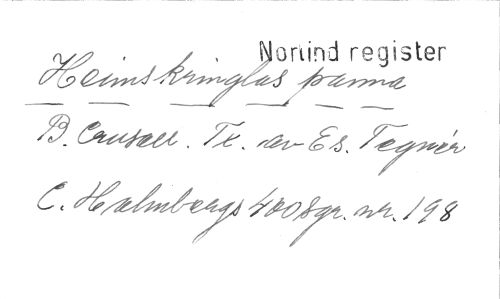 Norlind register
Heimskringlas panna
B. Crusell. Tx. av Es. Tegnér
C. Halmbergs 4008gr. nr. 198